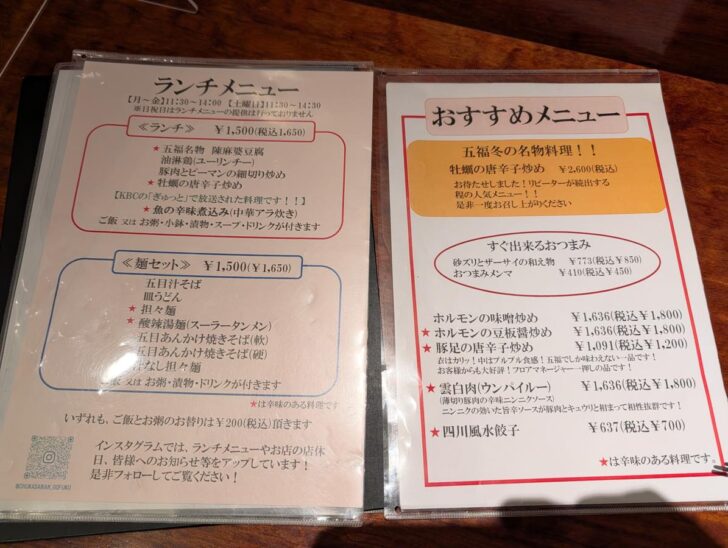 ランチメニュー
【月~金】11:30~14:00 【土曜日】11:30~14:30
※日祝日はランチメニューの提供は行っておりません
≪ランチ≫ ¥1,500(税込1,650)
★五福名物 陳麻婆豆腐
油淋鶏(ユーリンチー)
豚肉とピーマンの細切り炒め
★牡蠣の唐辛子炒め
【KBCの「ぎゅっと」で放送された料理です!!】
★魚の辛味煮込み(中華アラ炊き)
ご飯 又は お粥・小鉢・漬物・スープ・ドリンクが付きます
≪麺セット≫ ¥1,500(¥1,650)
五目汁そば
皿うどん
★担々麺
★酸辣湯麺(スーラータンメン)
五目あんかけ焼きそば(軟)
五目あんかけ焼きそば(硬)
汁なし担々麺
ご飯 又は お粥・漬物・ドリンクが付きます
★は辛味のある料理です
いずれも、ご飯とお粥のお替りは¥200(税込)頂きます
インスタグラムでは、ランチメニューやお店の店休
日、皆様へのお知らせ等をアップしています!
是非フォローしてご覧ください!
おすすめメニュー
五福冬の名物料理!!
牡蠣の唐辛子炒め ¥2,600(税込)
お待たせしました!リピーターが続出する
程の人気メニュー!!
是非一度お召し上がりください
すぐ出来るおつまみ
砂ズリとザーサイの和え物 ¥773(税込¥850)
おつまみメンマ ¥410(税込¥450)
ホルモンの味噌炒め ¥1,636(税込¥1,800)
★ホルモンの豆板醤炒め ¥1,636(税込¥1,800)
★豚足の唐辛子炒め ¥1,091(税込¥1,200)
衣はカリッ!中はプルプル食感!五福でしか味わえない一品です!
お客様からも大好評!フロアマネージャー一押しの品です!
★雲白肉(ウンパイルー) ¥1,636(税込¥1,800)
(薄切り豚肉の辛味ニンニクソース)
ニンニクの効いた旨辛ソースが豚肉とキュウリと相まって相性抜群です!
★四川風水餃子 ¥637(税込¥700)
★は辛味のある料理です。